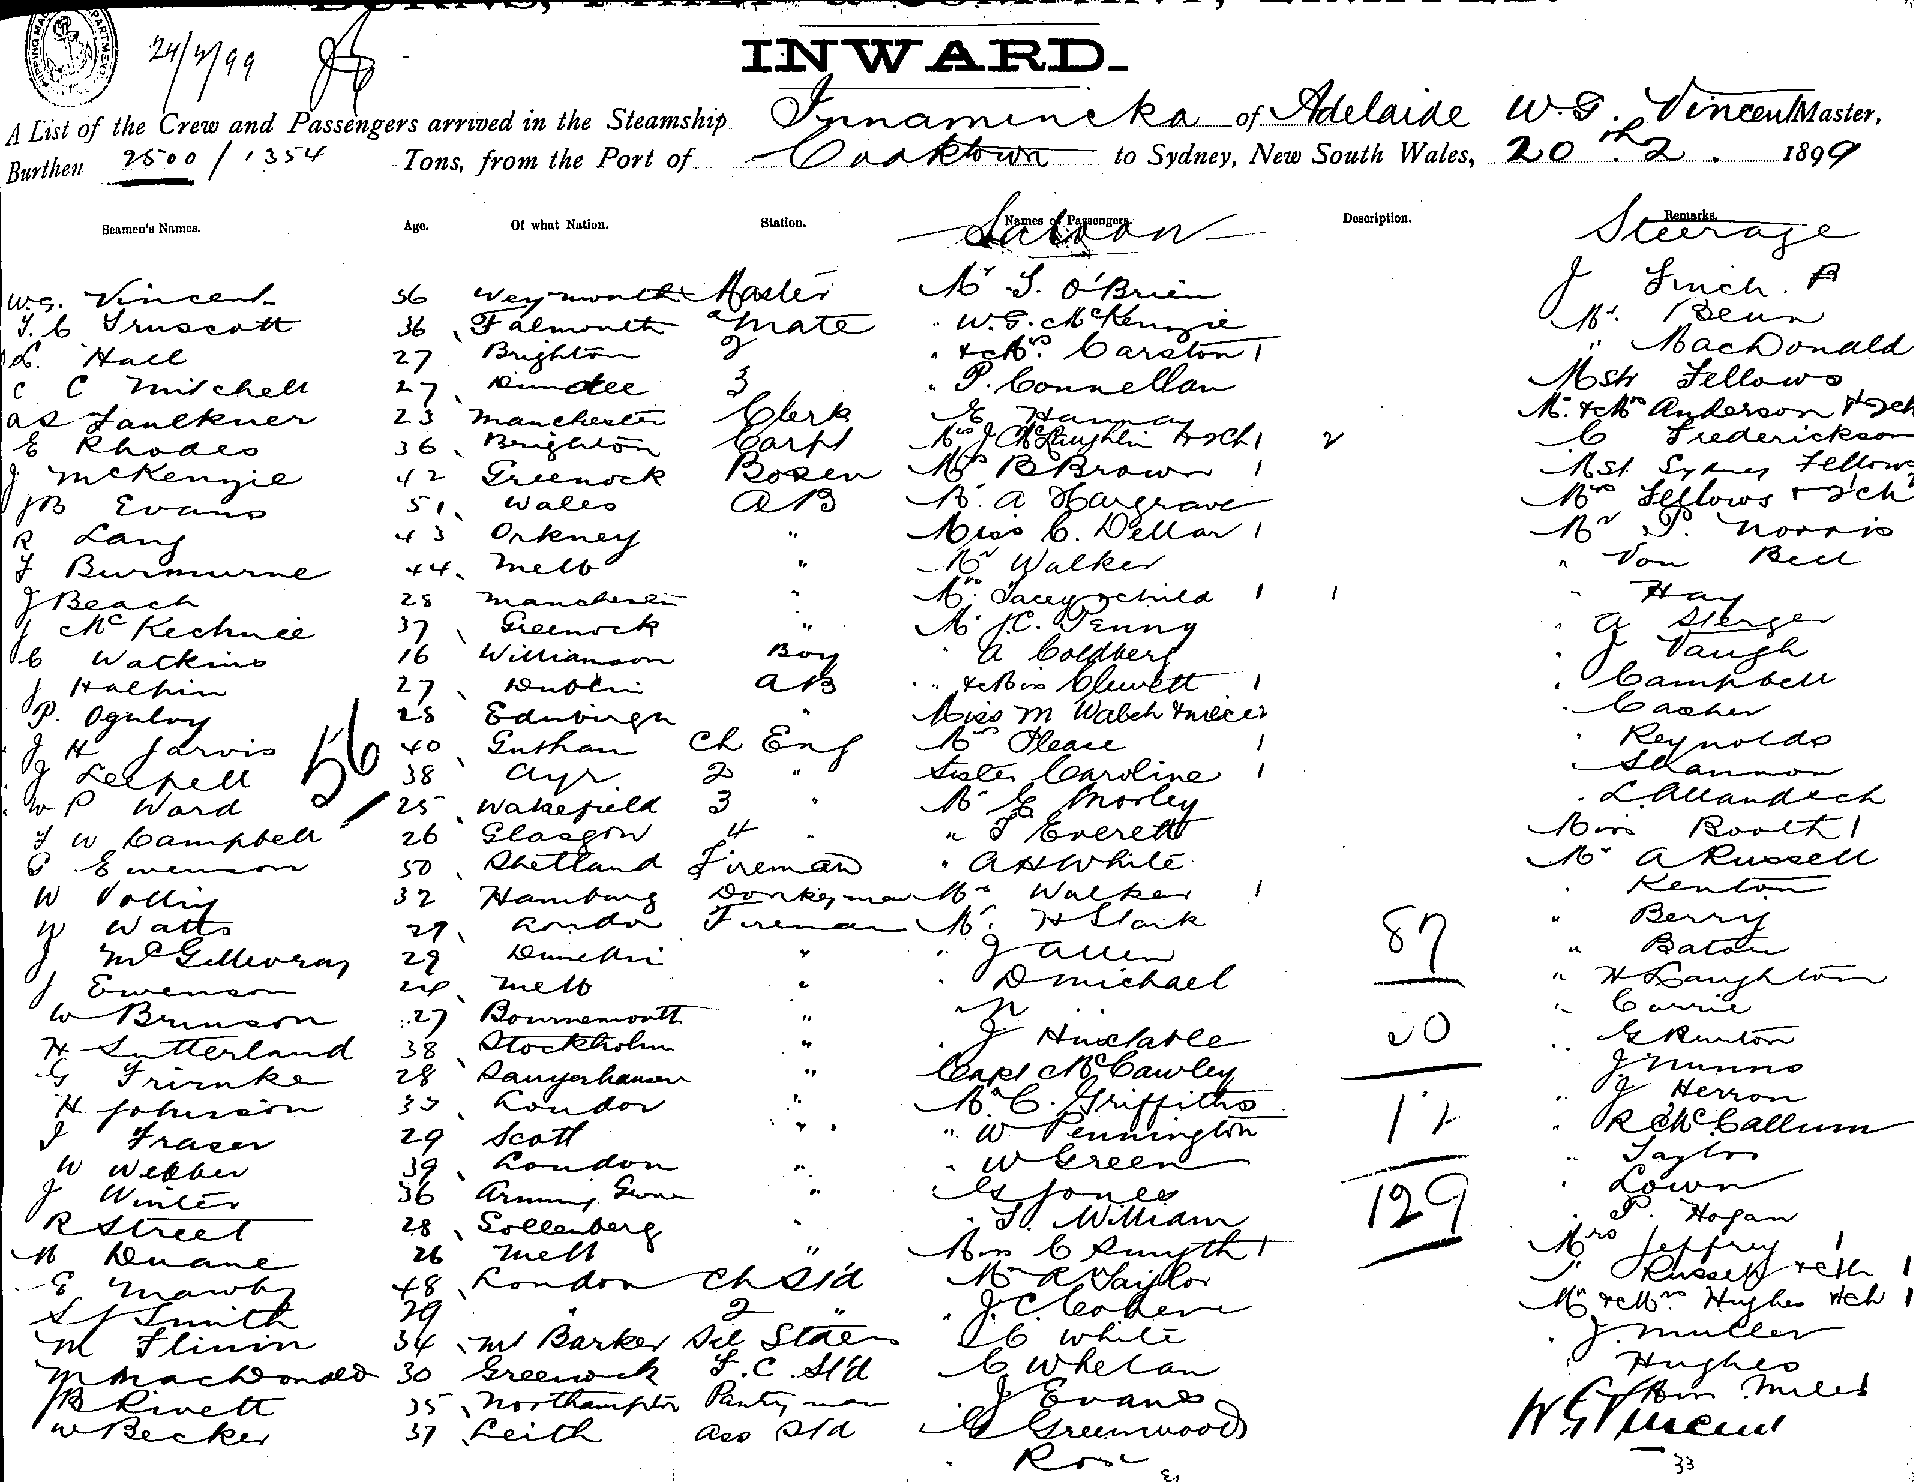 BURNS, PHILP & COMPANY, LIMITED.
24/2/99
INWARD.
A List of the Crew and Passengers arrived in the Steamship Innamincka of Adelaide W.G. Vincent Master,
Burthen 2500 / 1354 Tons, from the Port of Cooktown to Sydney, New South Wales, 20th 2. 1899
Seamen's Names. Age. Of what Nation. Station. Names of Passengers. Description. Remarks.
Saloon Steerage
W.G. Vincent 56 Weymouth Master Mr T. O'Brien J Finch
T. C Truscott 36 Falmouth Mate " W.G. McKenzie Mr. Benn
L. Hall 27 Brighton 2 " & Mrs. Carston 1 " MacDonald
C C Mitchell 27 Dundee 3 " P. Connellan Mstr Fellows
A S Faulkner 23 Manchester Clerk E Hannay Mr. & Mrs Anderson & 2ch
E Rhodes 36 Brighton Carpt Mrs J McLaughlin & 2Ch 1 2 C Frederickson
J McKenzie 42 Greenock Bosen Mrs B Brown 1 Mst. Sydney Fellows
J B Evans 51 Wales AB Mr. A Hargrave Mrs Fellows & 2ch
R Lang 43 Orkney " Miss C. Dellar 1 Mr P. Norris
F Burmurne 44 Melb " Mr Walker " Von Bell
J Beach 28 Manchester " Mrs. Tacey & child 1 1 " Hay
J McKechnie 37 Greenock " Mr J.C. Penny " A Sterger
C Watkins 16 Williamson Boy " A Coldberg " J Vaugh
J Halpin 27 Dublin AB " & Mrs Clewett 1 " Campbell
P. Ogilvy 28 Edinburgh " Miss M Walsh & niece " Casher
J H Jarvis 40 Gutham Ch Eng Mrs Please 1 " Reynolds
56
J Leepell 38 Ayr 2 " Sister Caroline 1 " Shannon
W P Ward 25 Wakefield 3 " Mr E Morley " Lallandech
F W Campbell 26 Glasgow 4 " " T Everett Miss Booth 1
P Ewenson 50 Shetland Fireman " A H White Mr A Russell
W Pollig 32 Hamburg Donkeyman Mrs Walker 1 " Kenton
W Watts 29 London Fireman Mr. H Stark 87 " Berry
J McGillivray 29 Dunedin " " J Allen " Baton
J Ewenson 24 Melb " " D Michael " H Laughton
W Brunson 27 Bournemouth " " Currie
H Sutterland 38 Stockholm " " J Huxtable 30 " G Runton
G Frimke 28 Sangerhausen " Capt McCawley J Nunns
H Johnson 33 London " Mr C. Griffiths 12 " J Herron
J Fraser 29 Scott " " W Pennington " R McCallum
W Webber 39 London " " W Green " Taylor
J Winter 36 " G Jones 129 " Lown
R Street 28 Sollenberg " " T. William " P. Hogan
M Duane 26 Melb " Miss C Smyth 1 Mrs Jeffrey 1
E Mawby 48 London Ch Std Mr R Taylor " Russell & ch 1
S J Smith 29 " 2 " " J.C. Cohen Mr & Mrs. Hughes & ch 1
M Flinin 34 Mt Barker Sal Stdess C White " J. Muller
M MacDonald 30 Greenock F.C. Std C Whelan " Hughes
B Rivett 35 Northampton Pantryman J Evans Miss Miles
W Becker 37 Leith Ass Std G Greenwood W G Vincent
" Rose 33